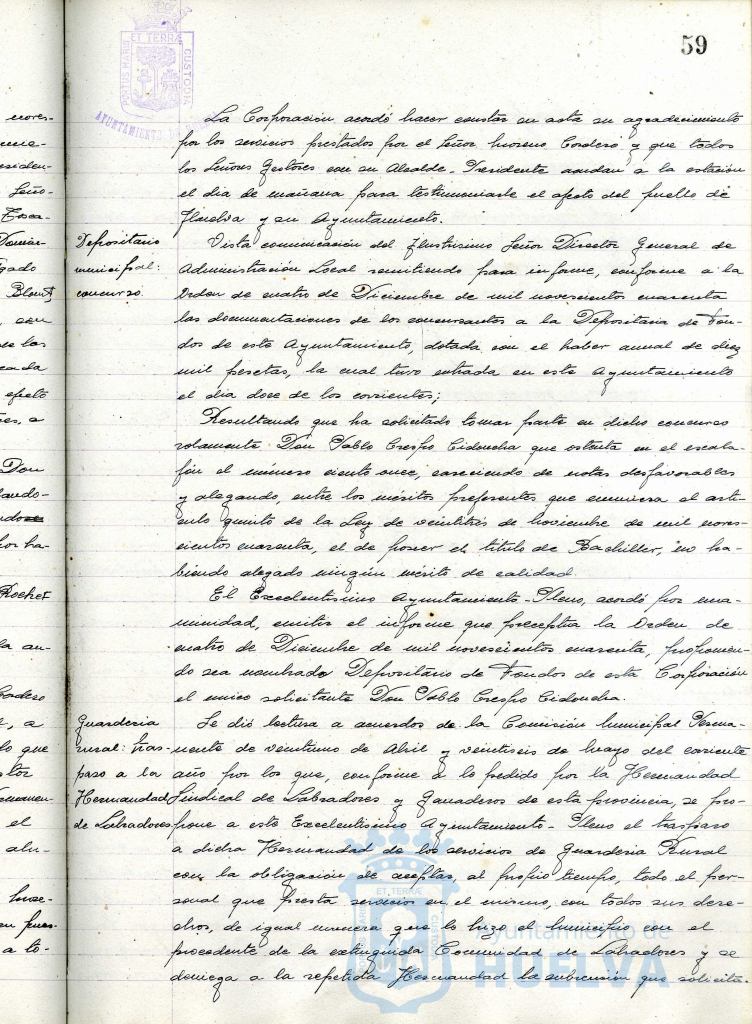 59
PORTUS MARIS ET TERRÆ CUSTODIA
AYUNTAMIENTO DE
La Corporación acordó hacer constar en acta su agradecimiento
por los servicios prestados por el Señor Moreno Cordero y que todos
los Señores Gestores con su Alcalde-Presidente acudan a la estación
el dia de mañana para testimoniarle el afecto del pueblo de
Huelva y su Ayuntamiento.
Depositario
municipal:
concurso.
Vista comunicación del Ilustrisimo Señor Director General de
Administración Local remitiendo para informe, conforme a la
Orden de cuatro de Diciembre de mil novescientos cuarenta
las documentaciones de los concursantes a la Depositaria de Fon-
dos de este Ayuntamiento, dotada con el haber anual de diez
mil pesetas, la cual tuvo entrada en este Ayuntamiento
el dia doce de los corrientes;
Resultando que ha solicitado tomar parte en dicho concurso
solamente Don Pablo Crespo Cidoncha que ostenta en el escala-
fón el número ciento once, careciendo de notas desfavorables
y alegando, entre los méritos preferentes que enumera el arti-
culo quinto de la Ley de veintitrés de Noviembre de mil noves-
cientos cuarenta, el de poseer el titulo de Bachiller, no ha-
biendo alegado ningún mérito de calidad.
El Excelentisimo Ayuntamiento-Pleno, acordó por una-
nimidad, emitir el informe que preceptúa la Orden de
cuatro de Diciembre de mil novescientos cuarenta, proponien-
do sea nombrado Depositario de Fondos de esta Corporación
el unico solicitante Don Pablo Crespo Cidoncha.
Guarderia
rural: tras-
paso a la
Hermandad
de Labradores
Se dió lectura a acuerdos de la Comisión Municipal Perma-
nente de veintiuno de Abril y veintiseis de Mayo del corriente
año por los que, conforme a lo pedido por la Hermandad
Sindical de Labradores y Ganaderos de esta provincia, se pro-
pone a este Excelentisimo Ayuntamiento-Pleno el traspaso
a dicha Hermandad de los servicios de Guarderia Rural
con la obligación de aceptar, al propio tiempo, todo el per-
sonal que presta servicios en el mismo, con todos sus dere-
chos, de igual manera que lo hizo el Municipio con el
procedente de la extinguida Comunidad de Labradores y se
deniega a la repetida Hermandad la subvención que solicita-
Ayuntamiento de
HUELVA